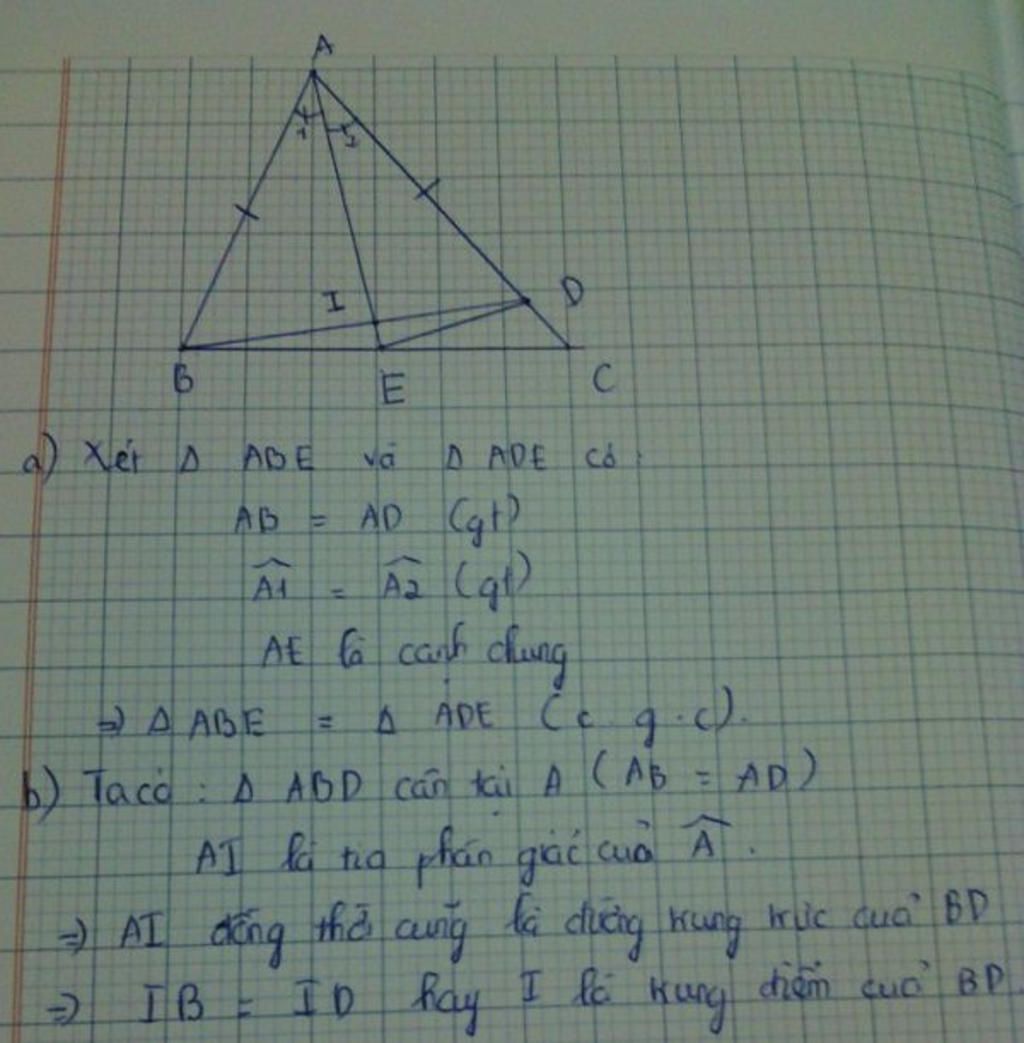 A
1 2
I D
B E C
a) Xét Δ ABE và Δ ADE có :
AB = AD (gt)
\widehat{A1} = \widehat{A2} (gt)
AE là cạnh chung
=> Δ ABE = Δ ADE (c.g.c).
b) Ta có : Δ ABD cân tại A (AB = AD)
AI là tia phân giác của \widehat{A}.
=> AI đồng thời cũng là đường trung trực của BD
=> IB = ID hay I là trung điểm của BD.